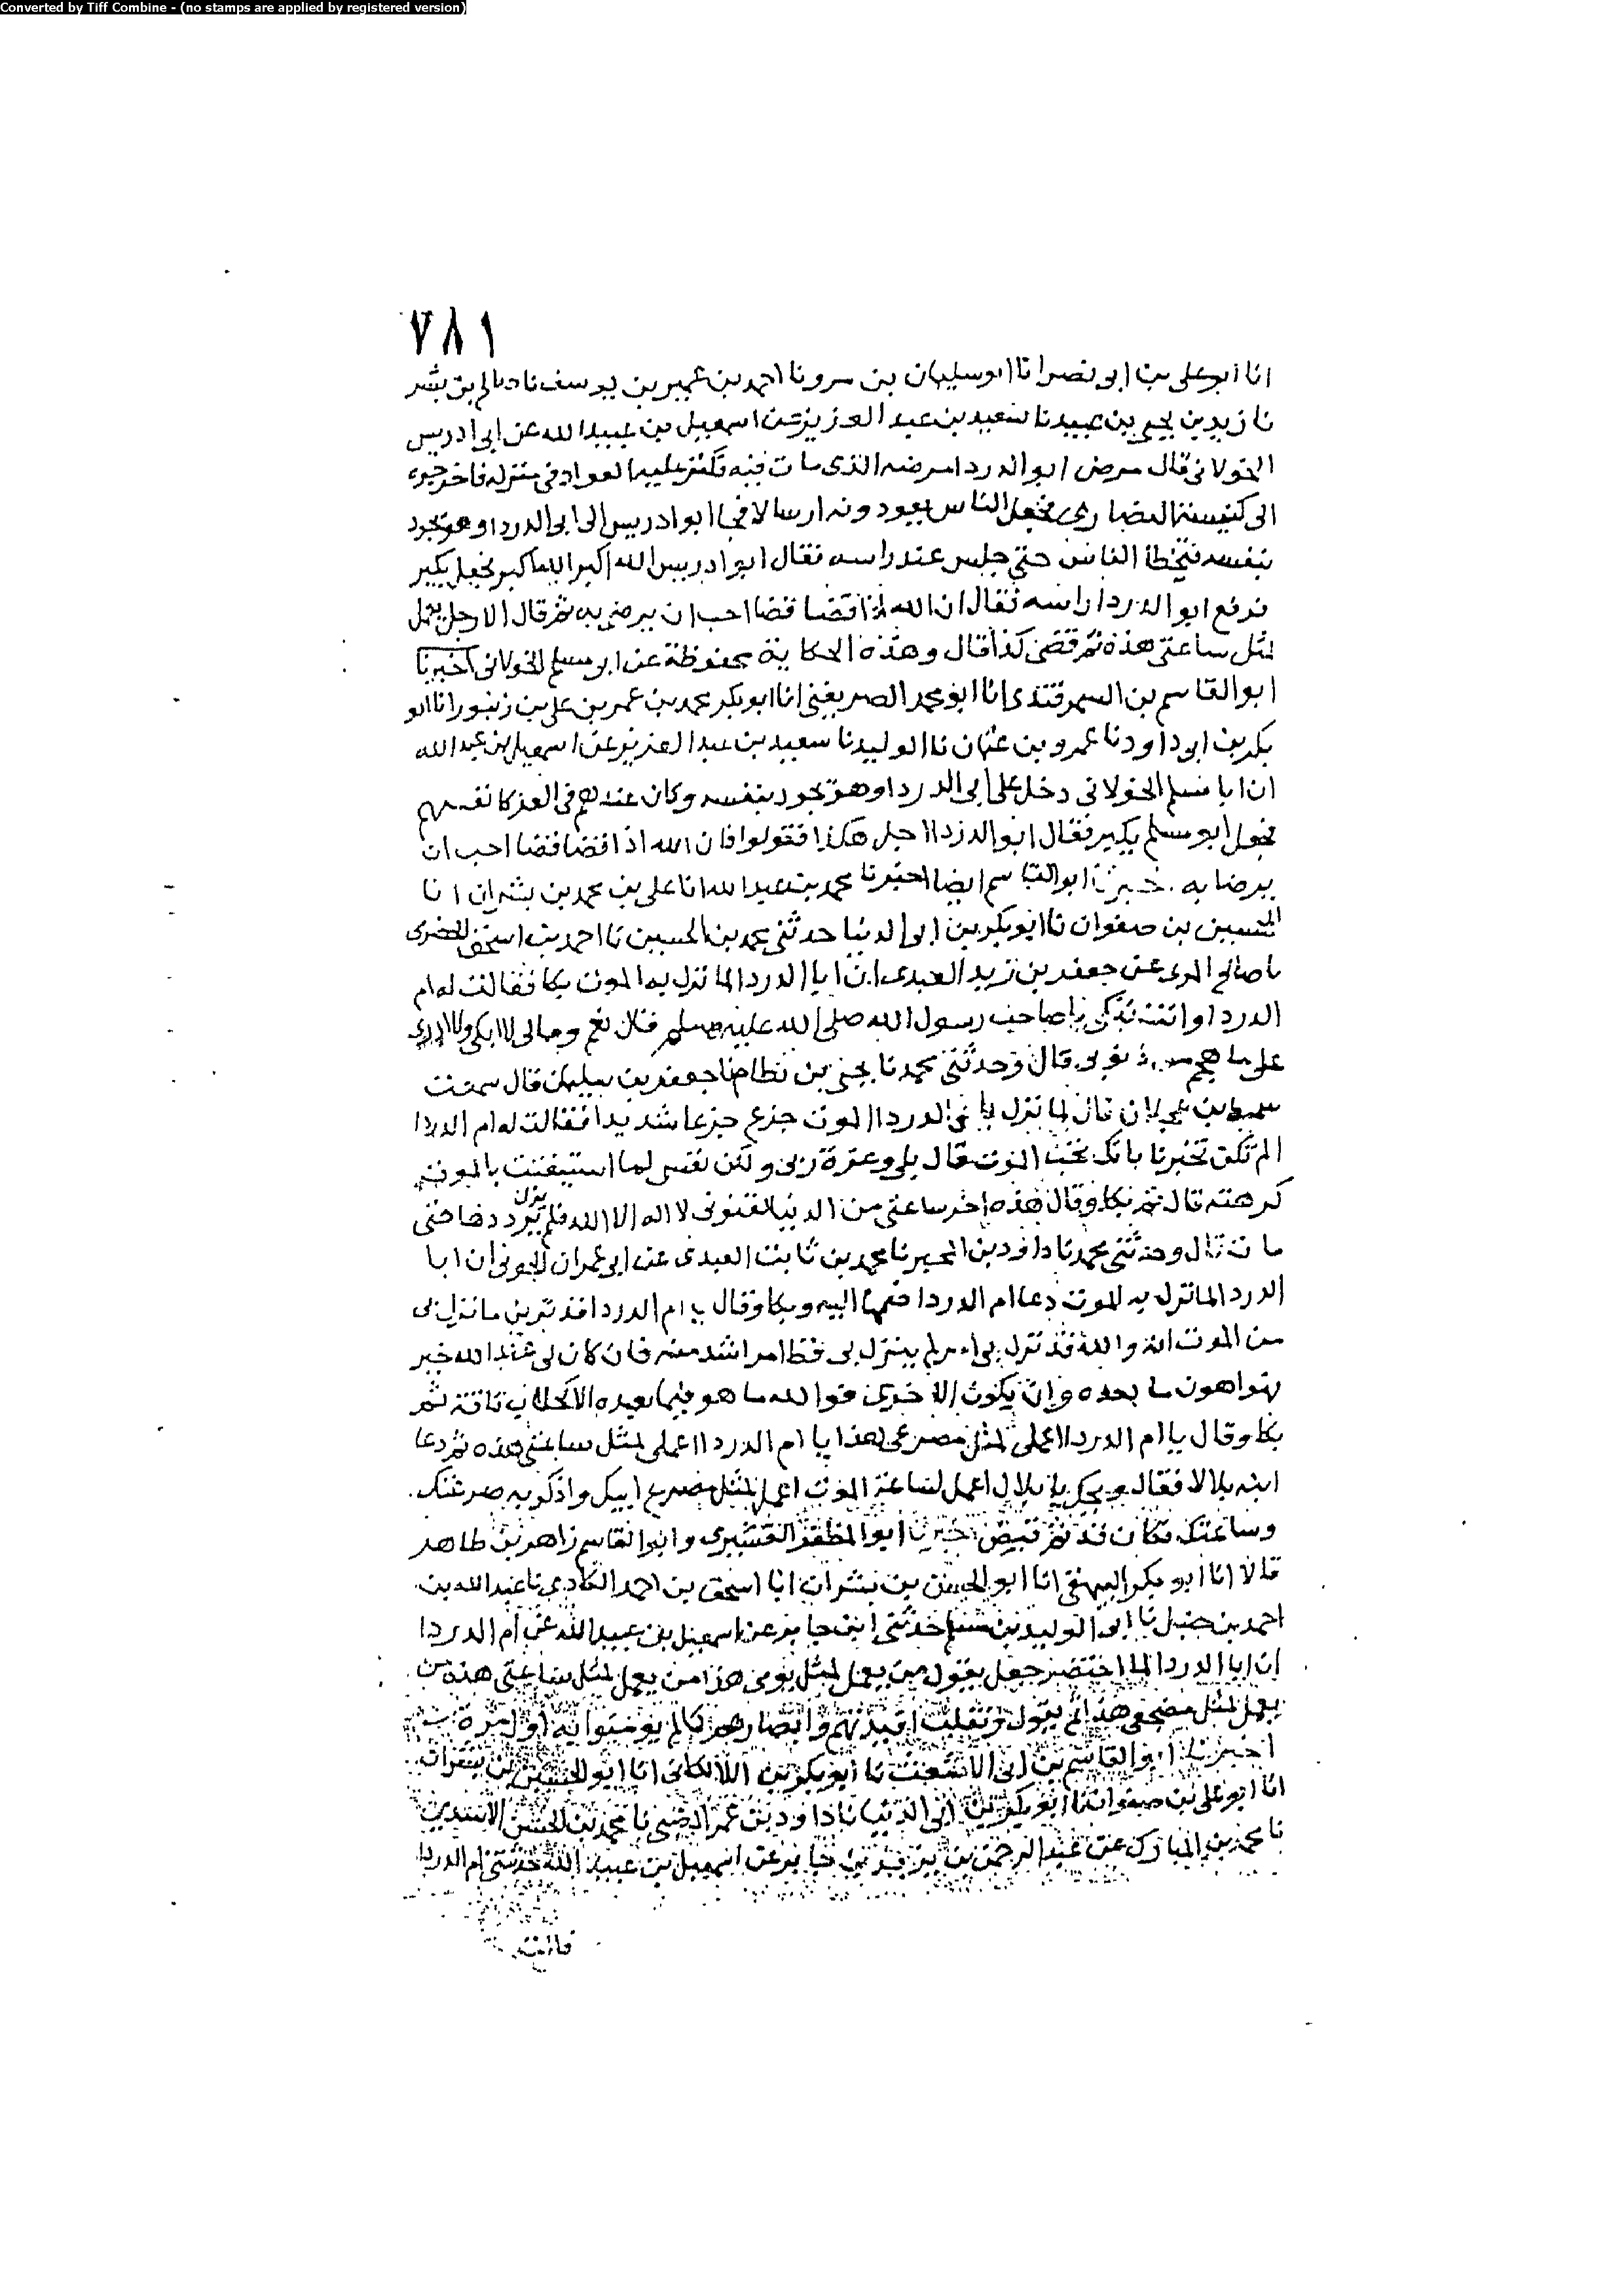 Converted by Tiff Combine - (no stamps are applied by registered version)
٧٨١
انا ابو على بن ابى نصر انا ابو سليمان بن نا احمد بن عمير بن يوسف نا صالح بن بشر
نا زيد بن يحيى بن عبيد نا سعيد بن عبد العزيز عن اسمعيل بن عبيد الله عن ابى ادريس
الخولانى قال مرض ابو الدردا مرضه الذى مات فيه فكثر عليه العواد فى منزله فاخرجوه
الى كنيسة النصارى فجعل الناس يعودونه ارسالا فجا ابو ادريس الى ابى الدردا وهو يجود
بنفسه فتخطا الناس حتى جلس عند راسه فقال ابو ادريس الله اكبر الله اكبر فجعل يكبر
فرفع ابو الدردا راسه فقال ان الله اذا قضا قضا احب ان يرضى به ثم قال الا رجل يعمل
لمثل ساعتى هذه ثم قضى كذا قال وهذه الحكاية محفوظة عن ابى مسلم الخولانى اخبرنا
ابو القاسم بن السمرقندى انا ابو محمد الصريفنى انا ابو بكر محمد بن عمر بن على بن زنبور انا ابو
بكر بن ابى داود نا عمرو بن عثمان نا الوليد نا سعيد بن عبد العزيز عن اسمعيل بن عبد الله
ان ابا مسلم الخولانى دخل على ابى الدردا وهو يجود بنفسه وكان عندهم فى العز كانفسهم
فجعل ابو مسلم يكبر فقال ابو الدردا اجل هكذا فقولوا فان الله اذا قضا قضا احب ان
يرضا به . خبرنا ابو القاسم ايضا اخبرنا محمد بن عبد الله انا على بن محمد بن بشران انا
الحسين بن صفوان نا ابو بكر بن ابى الدنيا حدثنى محمد بن الحسين نا احمد بن اسحق الحضرى
نا صالح المرى عن جعفر بن زيد العبدى ان ابا الدردا لما نزل به الموت بكا فقالت له ام
الدردا وانت تبكى يا صاحب رسول الله صلى الله عليه وسلم قال نعم ومالى لا ابكى ولا ادرى
على ما اهجم من ذنوبى قال وحدثنى محمد نا يحيى بن بطام نا جعفر بن سليمان قال سمعت
سميط بن عجلان قال لما نزل بابى الدردا الموت جزع جزعا شديدا فقالت له ام الدردا
الم تكن تخبرنا بانك تحب الموت قال بلى وعزة ربى ولكن نفسى لما استيقنت بالموت
كرهته قال ثم بكا وقال هذه اخر ساعتى من الدنيا لقنونى لا اله الا الله فلم يزل يرددها حتى
مات قال وحدثنى محمد نا داود بن المحبر نا محمد بن ثابت العبدى عن ابى عمران الجونى ان ابا
الدردا لما نزل به الموت دعا ام الدردا فضمها اليه وبكا وقال يا ام الدردا قد ترين ما نزل بى
من الموت انه والله قد نزل بى امر لم ينزل بى قط امر اشد منه فان كان لى عند الله خير
فهو اهون ما بعده وان يكون الاخرى فوالله ما هو فيما بعده الا كحلاب ناقة ثم
بكا وقال يا ام الدردا اعملى لمثل مصرعى هذا يا ام الدردا اعملى لمثل ساعتى هذه ثم دعا
ابنه بلالا فقال ويحك يا بلال اعمل لساعة الموت اعمل لمثل مصرع ابيك واذكر به صرعتك
وساعتك فكان قد ثم قبض اخبرنا ابو المظفر القشيرى وابو القاسم زاهر بن طاهر
قالا انا ابو بكر البيهقى انا ابو الحسين بن بشران انا اسحق بن احمد الكاذى نا عبد الله بن
احمد بن حنبل نا ابى نا الوليد بن مسلم حدثنى ابن جابر عن اسمعيل بن عبيد الله عن ام الدردا
ان ابا الدردا لما احتضر جعل يقول من يعمل لمثل يومى هذا من يعمل لمثل ساعتى هذه من
يعمل لمثل مضجعى هذا ثم يقول ونقلب افئدتهم وابصارهم كما لم يومنوا به اول مرة
اخبرنا ابو القاسم بن ابى الاشعث نا ابو بكر بن اللالكائى انا ابو الحسين بن بشران
انا ابو على بن صفوان نا ابو بكر بن ابى الدنيا نا داود بن عمر الضبى نا محمد بن الحسن الاسدى
نا محمد بن المبارك عن عبد الرحمن بن يزيد بن جابر عن اسمعيل بن عبيد الله حدثتنى ام الدردا
قالت